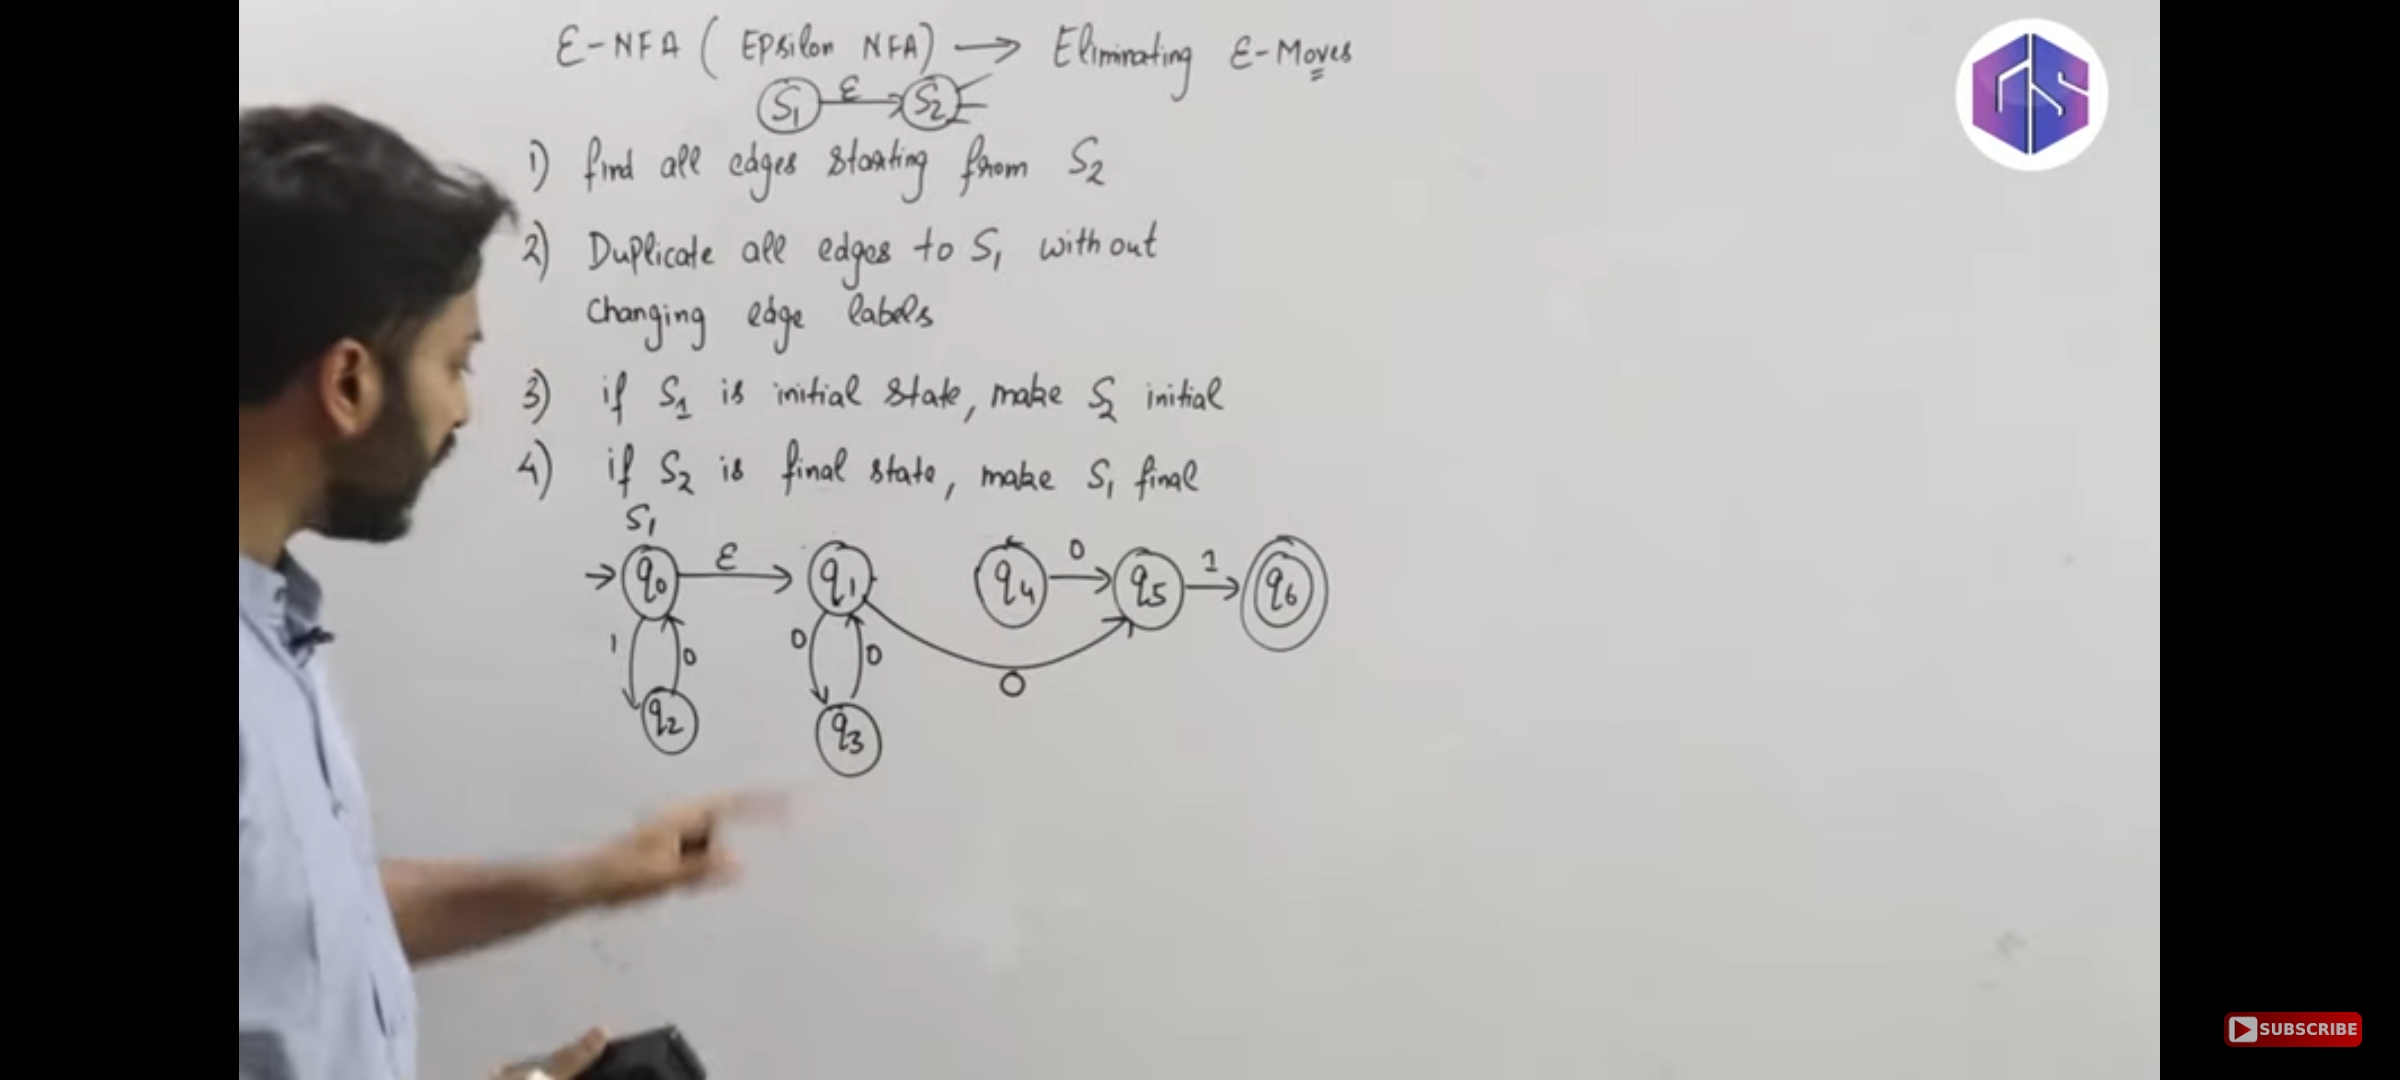 ε-NFA ( Epsilon NFA) → Eliminating ε-Moves
S1 ε S2
1) find all edges starting from S2
2) Duplicate all edges to S1 without
changing edge labels
3) if S1 is initial state, make S2 initial
4) if S2 is final state, make S1 final
S1
q0 ε q1 q4 0 q5 1 q6
1 0 0 0 0
q2 q3
GS
SUBSCRIBE